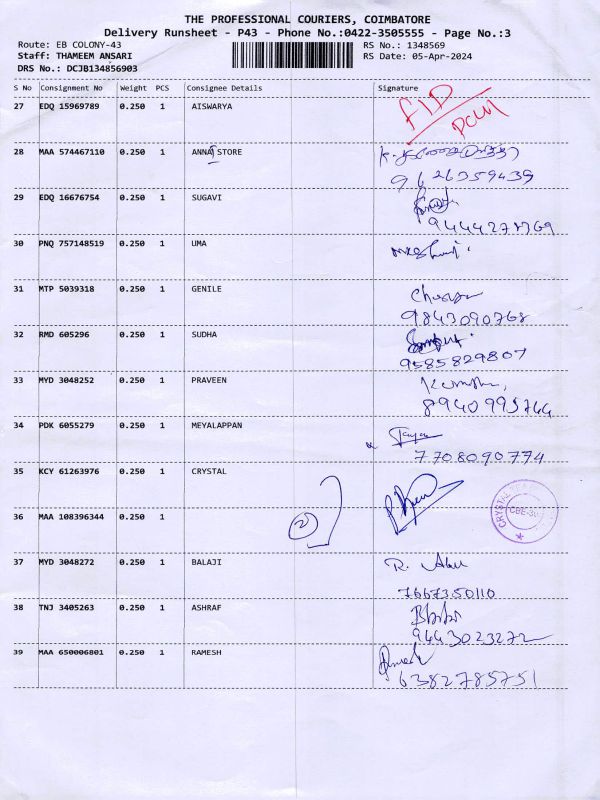 THE PROFESSIONAL COURIERS, COIMBATORE
Delivery Runsheet - P43 - Phone No.:0422-3505555 - Page No.:3
Route: EB COLONY-43 RS No.: 1348569
Staff: THAMEEM ANSARI RS Date: 05-Apr-2024
DRS No.: DCJB134856903
S No Consignment No Weight PCS Consignee Details Signature
27 EDQ 15969789 0.250 1 AISWARYA
28 MAA 574467110 0.250 1 ANNAI STORE
9626359439
29 EDQ 16676754 0.250 1 SUGAVI
30 PNQ 757148519 0.250 1 UMA
31 MTP 5039318 0.250 1 GENILE
9843090768
32 RMD 605296 0.250 1 SUDHA
9585829807
33 MYD 3048252 0.250 1 PRAVEEN
34 PDK 6055279 0.250 1 MEYALAPPAN
7708090774
35 KCY 61263976 0.250 1 CRYSTAL
CRYSTAL
36 MAA 108396344 0.250 1
2
37 MYD 3048272 0.250 1 BALAJI
7667350110
38 TNJ 3405263 0.250 1 ASHRAF
9443023272
39 MAA 650006801 0.250 1 RAMESH
6382785751